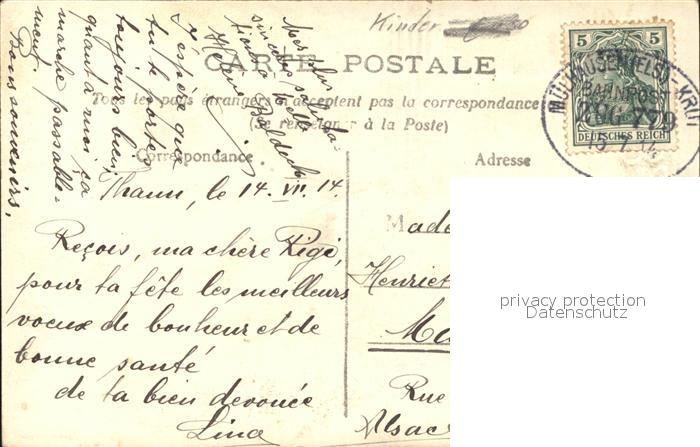 Kinder
CARTE POSTALE
Tous les pays étrangers n'acceptent pas la correspondance
(Se renseigner à la Poste)
Correspondance
Adresse
5 5
DEUTSCHES REICH
MÜLHAUSEN (ELS)-KRÜT
BAHNPOST
ZUG 779
15 7 14
Thann, le 14. VII. 14.
Reçois, ma chère Rigi,
pour ta fête les meilleurs
voeux de bonheur et de
bonne santé
de ta bien dévouée
Lina
J'espère que
tu te portes
toujours bien,
quant à moi ça
marche passable-
ment.
Bons souvenirs.
Mes plus
sincères saluta-
tions à
Hélène
Made
Henriet
Ma
Rue
Alsac
privacy protection
Datenschutz